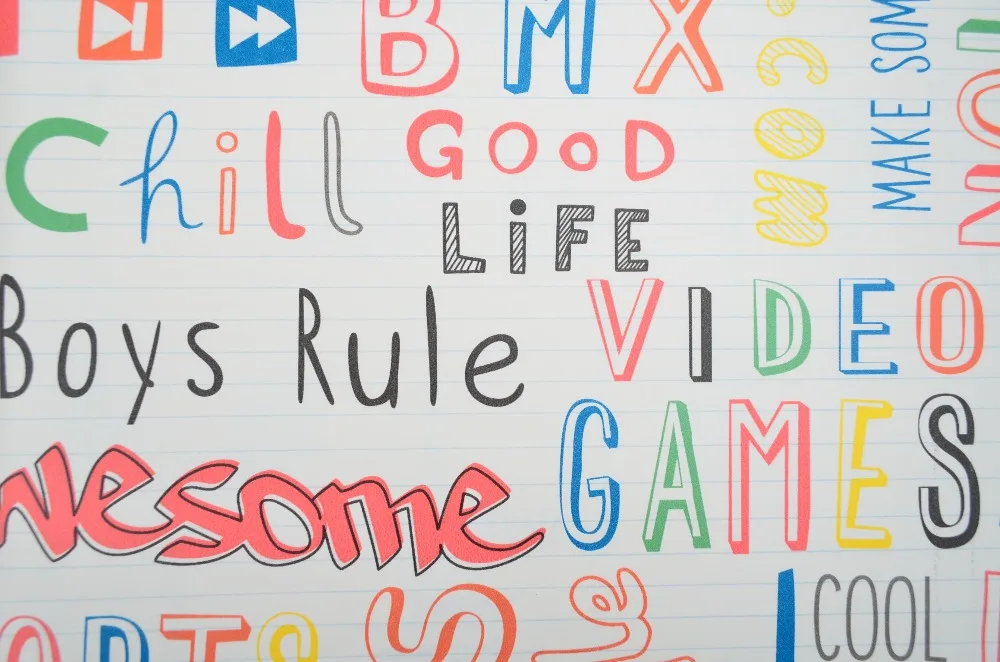 BMX
Chill GOOD
LiFE
.com
MAKE SOM
Boys Rule
VIDEO
GAMES
wesome
COOL